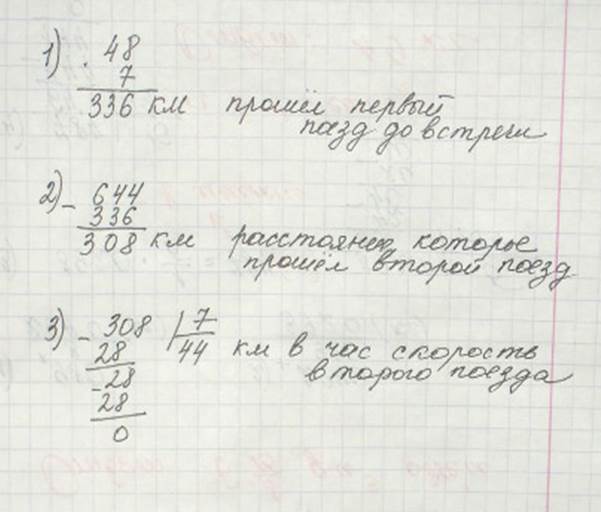 1) · 48
7
336 км прошёл первый
поезд до встречи
2) - 644
336
308 км расстояние, которое
прошёл второй поезд
3) - 308 | 7
28 44 км в час скорость
- 28 второго поезда
28
0